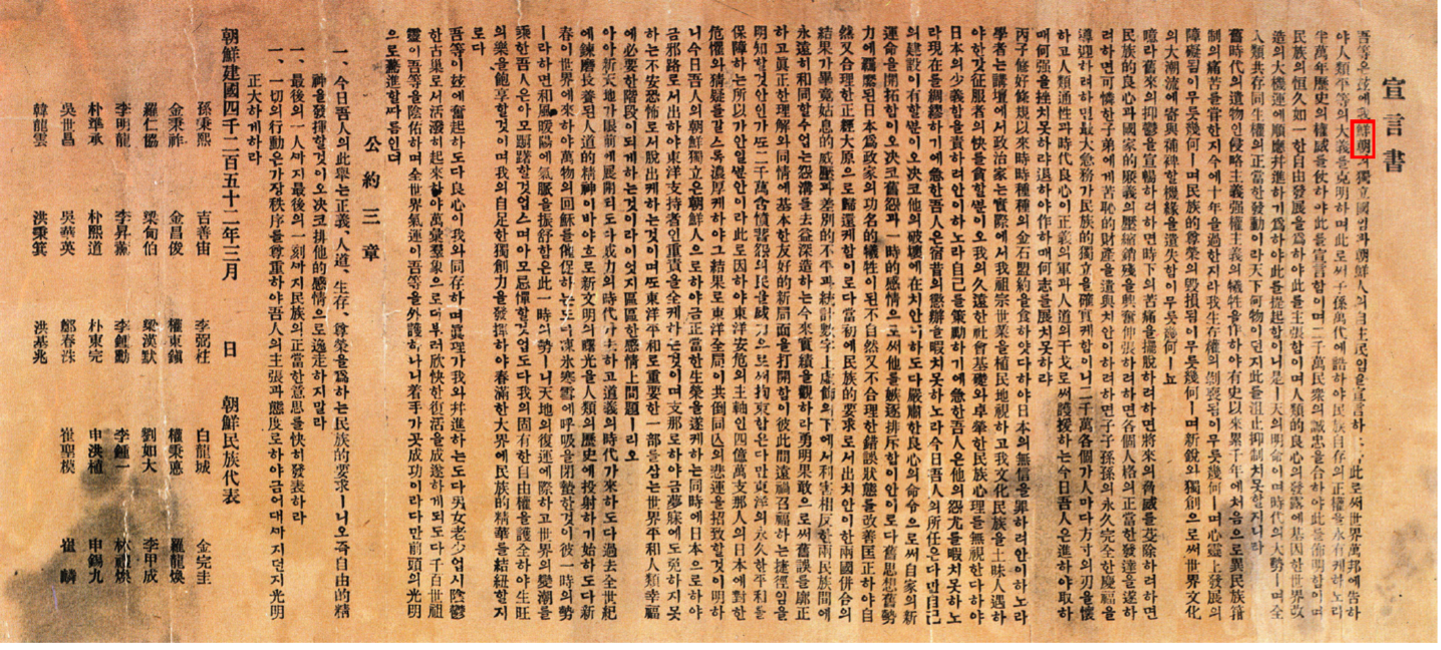 宣言書
吾等은玆에我鮮朝의獨立國임과朝鮮人의自主民임을宣言하노라此로써世界萬邦에告하
야人類平等의大義를克明하며此로써子孫萬代에誥하야民族自存의正權을永有케하노라
半萬年歷史의權威를仗하야此를宣言함이며二千萬民衆의誠忠을合하야此를佈明함이며
民族의恒久如一한自由發展을爲하야此를主張함이며人類的良心의發露에基因한世界改
造의大機運에順應幷進하기爲하야此를提起함이니是ㅣ天의明命이며時代의大勢ㅣ며全
人類共存同生權의正當한發動이라天下何物이던지此를沮止抑制치못할지니라
舊時代의遺物인侵略主義强權主義의犧牲을作하야有史以來累千年에처음으로異民族箝
制의痛苦를嘗한지今에十年을過한지라我生存權의剝喪됨이무릇幾何ㅣ며心靈上發展의
障礙됨이무릇幾何ㅣ며民族的尊榮의毁損됨이무릇幾何ㅣ며新銳와獨創으로써世界文化
의大潮流에寄與補裨할機緣을遺失함이무릇幾何ㅣ뇨
噫라舊來의抑鬱을宣暢하려하면時下의苦痛을擺脫하려하면將來의脅威를芟除하려하면
民族的良心과國家的廉義의壓縮銷殘을興奮伸張하려하면各個人格의正當한發達을遂하
려하면可憐한子弟에게苦恥的財産을遺與치안이하려하면子子孫孫의永久完全한慶福을
導迎하려하면最大急務가民族的獨立을確實케함이니二千萬各個가人마다方寸의刃을懷
하고人類通性과時代良心이正義의軍과人道의干戈로써護援하는今日吾人은進하야取하
매何强을挫치못하랴退하야作하매何志를展치못하랴
丙子修好條規以來時時種種의金石盟約을食하얏다하야日本의無信을罪하려안이하노라
學者는講壇에서政治家는實際에서我祖宗世業을植民地視하고我文化民族을土昧人遇하
야한갓征服者의快를貪할뿐이오我의久遠한社會基礎와卓犖한民族心理를無視한다하야
日本의少義함을責하려안이하노라自己를策勵하기에急한吾人은他의怨尤를暇치못하노
라現在를綢繆하기에急한吾人은宿昔의懲辦을暇치못하노라今日吾人의所任은다만自己
의建設이有할뿐이오決코他의破壞에在치안이하도다嚴肅한良心의命令으로써自家의新
運命을開拓함이오決코舊怨과一時的感情으로써他를嫉逐排斥함이안이로다舊思想舊勢
力에羈縻된日本爲政家의功名的犧牲이된不自然又不合理한錯誤狀態를改善匡正하야自
然又合理한正經大原으로歸還케함이로다當初에民族的要求로서出치안이한兩國併合의
結果가畢竟姑息的威壓과差別的不平과統計數字上虛飾의下에서利害相反한兩民族間에
永遠히和同할수업는怨溝를去益深造하는今來實績을觀하라勇明果敢으로써舊誤를廓正
하고眞正한理解와同情에基本한友好的新局面을打開함이彼此間遠禍召福하는捷徑임을
明知할것안인가또二千萬含憤蓄怨의民을威力으로써拘束함은다만東洋의永久한平和를
保障하는所以가안일뿐안이라此로因하야東洋安危의主軸인四億萬支那人의日本에對한
危懼와猜疑를갈스록濃厚케하야그結果로東洋全局이共倒同亡의悲運을招致할것이明하
니今日吾人의朝鮮獨立은朝鮮人으로하야금正當한生榮을遂케하는同時에日本으로하야
금邪路로서出하야東洋支持者인重責을全케하는것이며支那로하야금夢寐에도免하지못
하는不安恐怖로서脫出케하는것이며또東洋平和로重要한一部를삼는世界平和人類幸福
에必要한階段이되게하는것이라이엇지區區한感情上問題ㅣ리오
아아新天地가眼前에展開되도다威力의時代가去하고道義의時代가來하도다過去全世紀
에鍊磨長養된人道的精神이바야흐로新文明의曙光을人類의歷史에投射하기始하도다新
春이世界에來하야萬物의回穌를催促하는도다凍氷寒雪에呼吸을閉蟄한것이彼一時의勢
ㅣ라하면和風暖陽에氣脈을振舒함은此一時의勢ㅣ니天地의復運에際하고世界의變潮를
乘한吾人은아모躕躇할것업스며아모忌憚할것업도다我의固有한自由權을護全하야生旺
의樂을飽享할것이며我의自足한獨創力을發揮하야春滿한大界에民族的精華를結紐할지
로다
吾等이玆에奮起하도다良心이我와同存하며眞理가我와幷進하는도다男女老少업시陰鬱
한古巢로서活潑히起來하야萬彙羣象으로더부러欣快한復活을成遂하게되도다千百世祖
靈이吾等을陰佑하며全世界氣運이吾等을外護하나니着手가곳成功이라다만前頭의光明
으로驀進할따름인뎌
公約三章
一、今日吾人의此擧는正義、人道、生存、尊榮을爲하는民族的要求ㅣ니오즉自由的精
神을發揮할것이오決코排他的感情으로逸走하지말라
一、最後의一人까지最後의一刻까지民族의正當한意思를快히發表하라
一、一切의行動은가장秩序를尊重하야吾人의主張과態度로하야금어대까지던지光明
正大하게하라
朝鮮建國四千二百五十二年三月 日 朝鮮民族代表
孫秉熙 吉善宙 李弼柱 白龍城 金完圭
金秉祚 金昌俊 權東鎭 權秉悳 羅龍煥
羅仁協 梁甸伯 梁漢默 劉如大 李甲成
李明龍 李昇薰 李鍾勳 李鍾一 林禮煥
朴準承 朴熙道 朴東完 申洪植 申錫九
吳世昌 吳華英 鄭春洙 崔聖模 崔麟
韓龍雲 洪秉箕 洪基兆